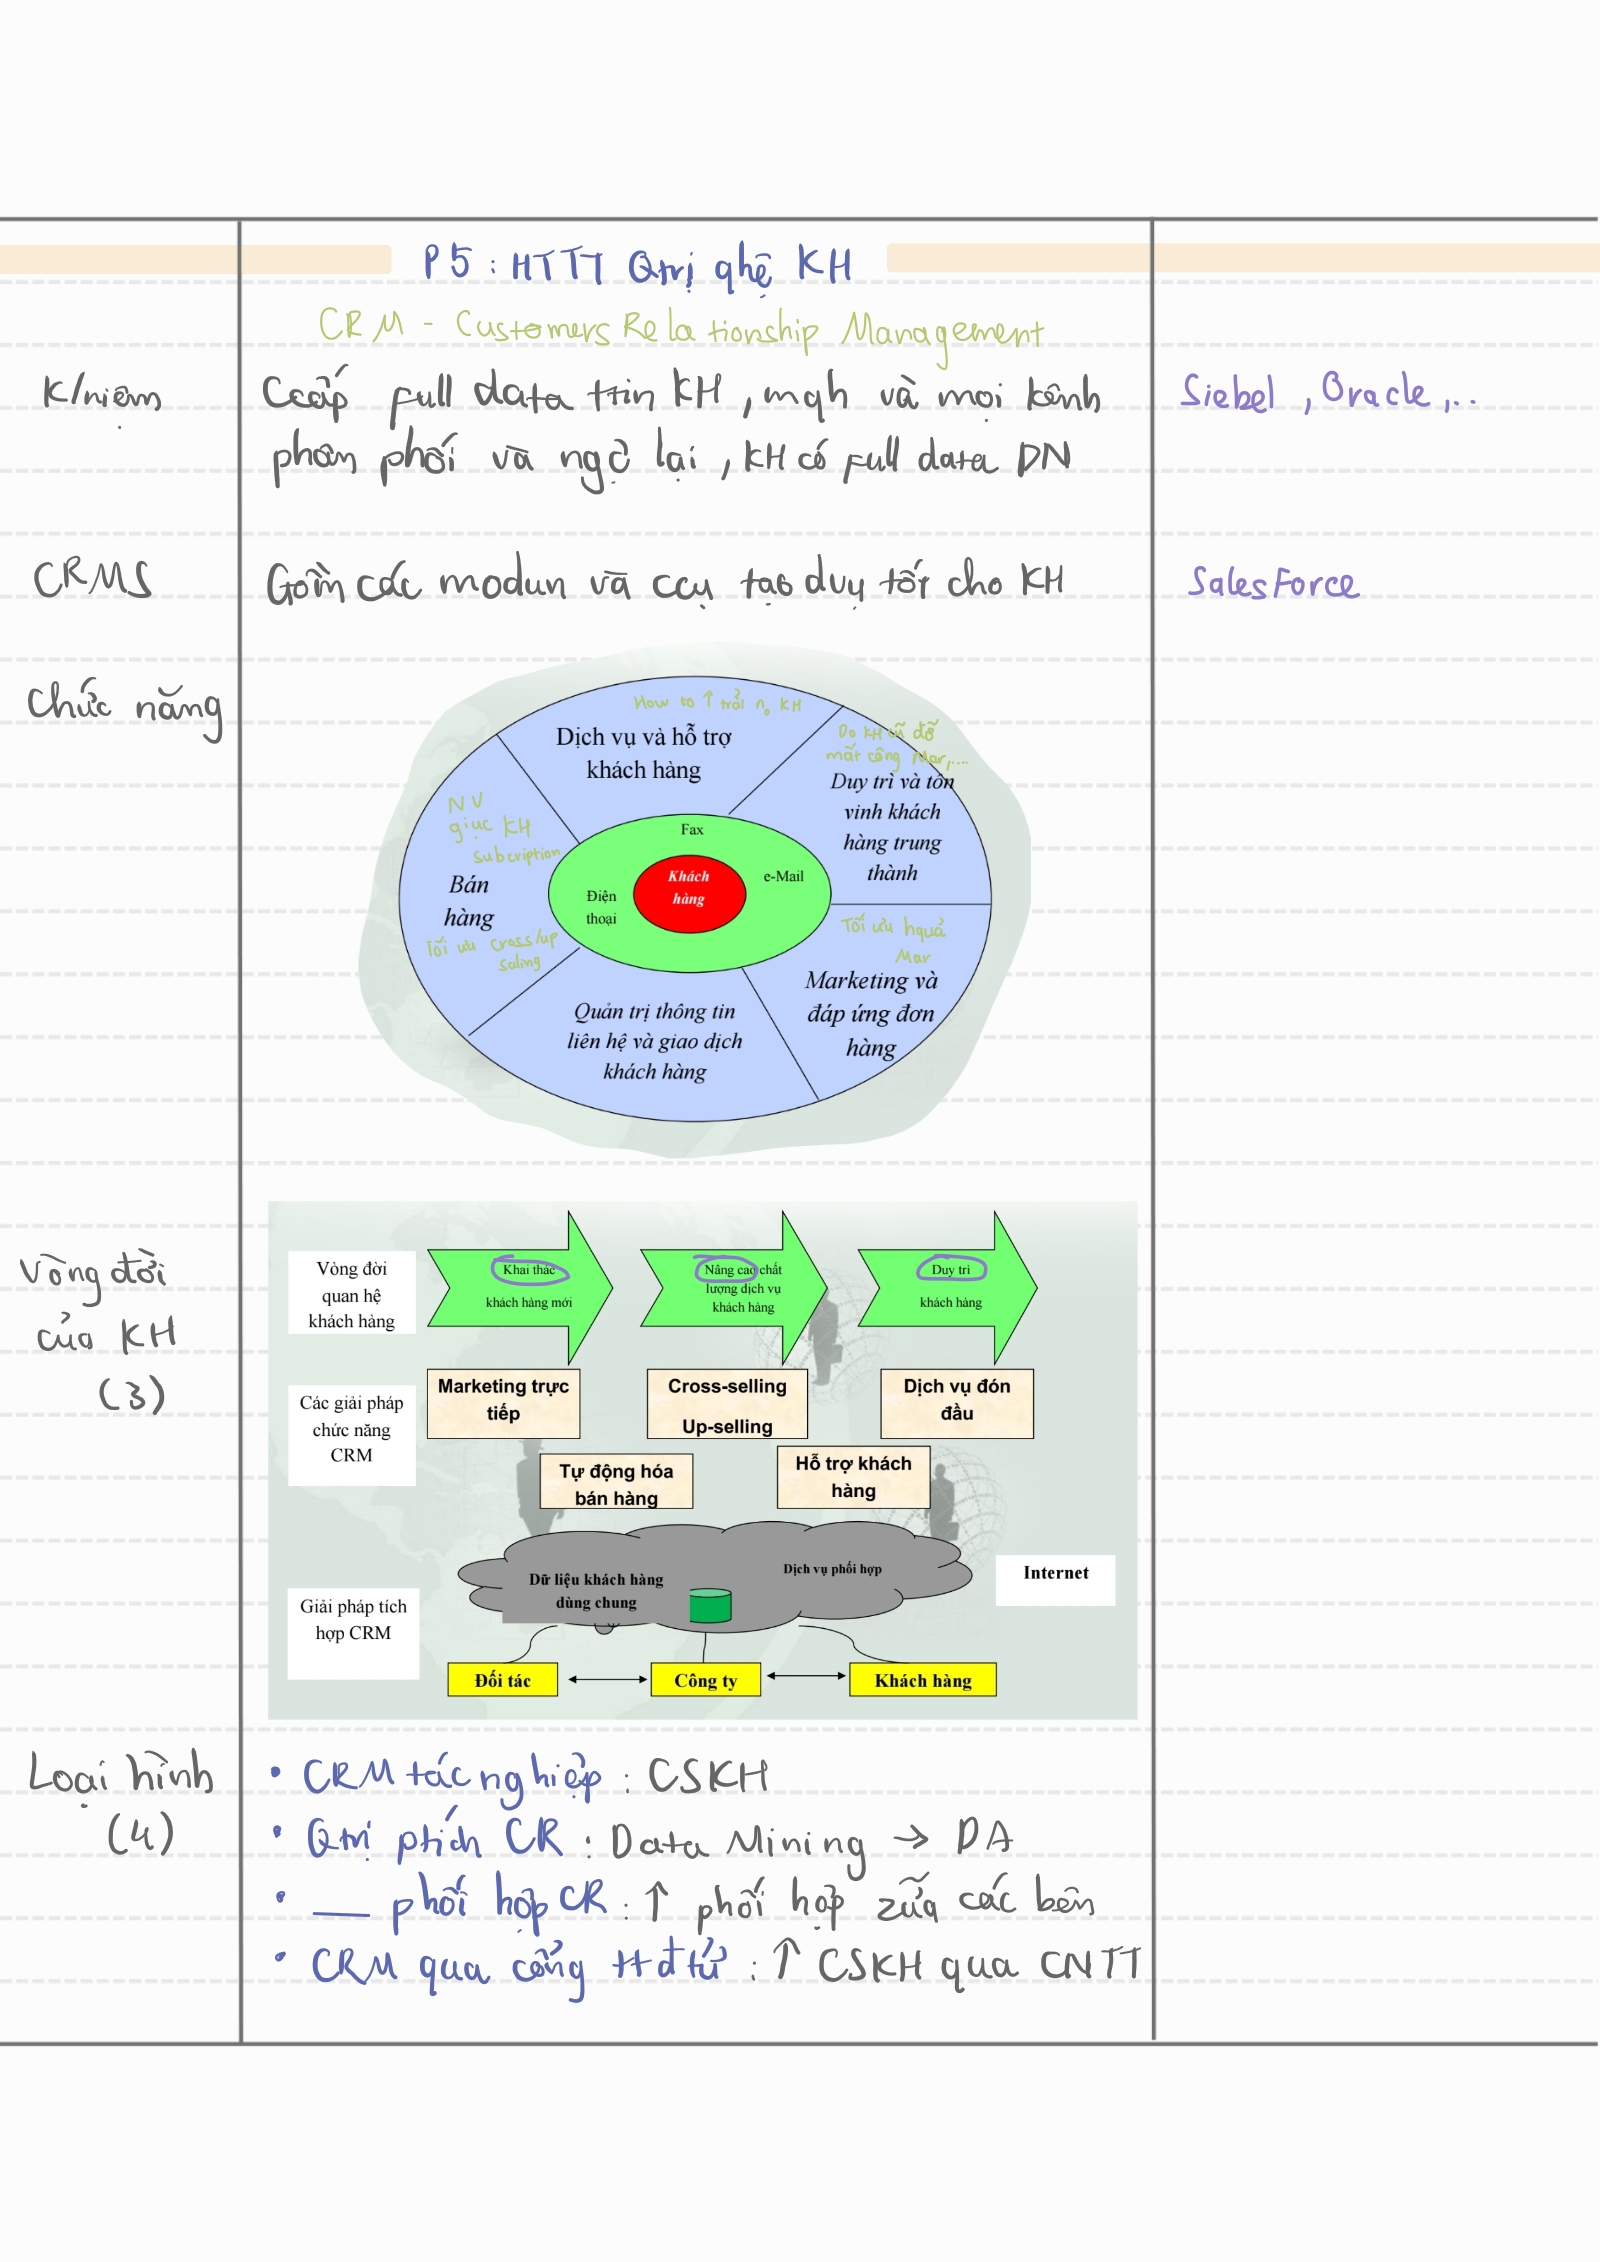 P5 : HTTT Qtrị qhệ KH
CRM - Customers Relationship Management
K/niệm
Ccấp full data ttin KH, mqh và mọi kênh
phân phối và ngc lại, KH có full data DN
Siebel, Oracle,..
CRMS
Gồm các modun và ccụ tạo dvụ tốt cho KH
SalesForce
Chức năng
How to ↑ trải n. KH
Dịch vụ và hỗ trợ
khách hàng
Do KH cũ đỡ
mất công Mar,...
Duy trì và tôn
vinh khách
hàng trung
thành
NV
giục KH
Subcription
Bán
hàng
Tối ưu Cross/up
saling
Fax
e-Mail
Điện
thoại
Khách
hàng
Tối ưu hquả
Mar
Marketing và
đáp ứng đơn
hàng
Quản trị thông tin
liên hệ và giao dịch
khách hàng
Vòng đời
của KH
(3)
Vòng đời
quan hệ
khách hàng
Khai thác
khách hàng mới
Nâng cao chất
lượng dịch vụ
khách hàng
Duy trì
khách hàng
Các giải pháp
chức năng
CRM
Marketing trực
tiếp
Cross-selling
Up-selling
Dịch vụ đón
đầu
Tự động hóa
bán hàng
Hỗ trợ khách
hàng
Giải pháp tích
hợp CRM
Dữ liệu khách hàng
dùng chung
Dịch vụ phối hợp
Internet
Đối tác
Công ty
Khách hàng
Loại hình
(4)
• CRM tác nghiệp : CSKH
• Qtrị ptích CR : Data Mining → DA
• — phối hợp CR : ↑ phối hợp zữa các bên
• CRM qua cổng ttđtử : ↑ CSKH qua CNTT